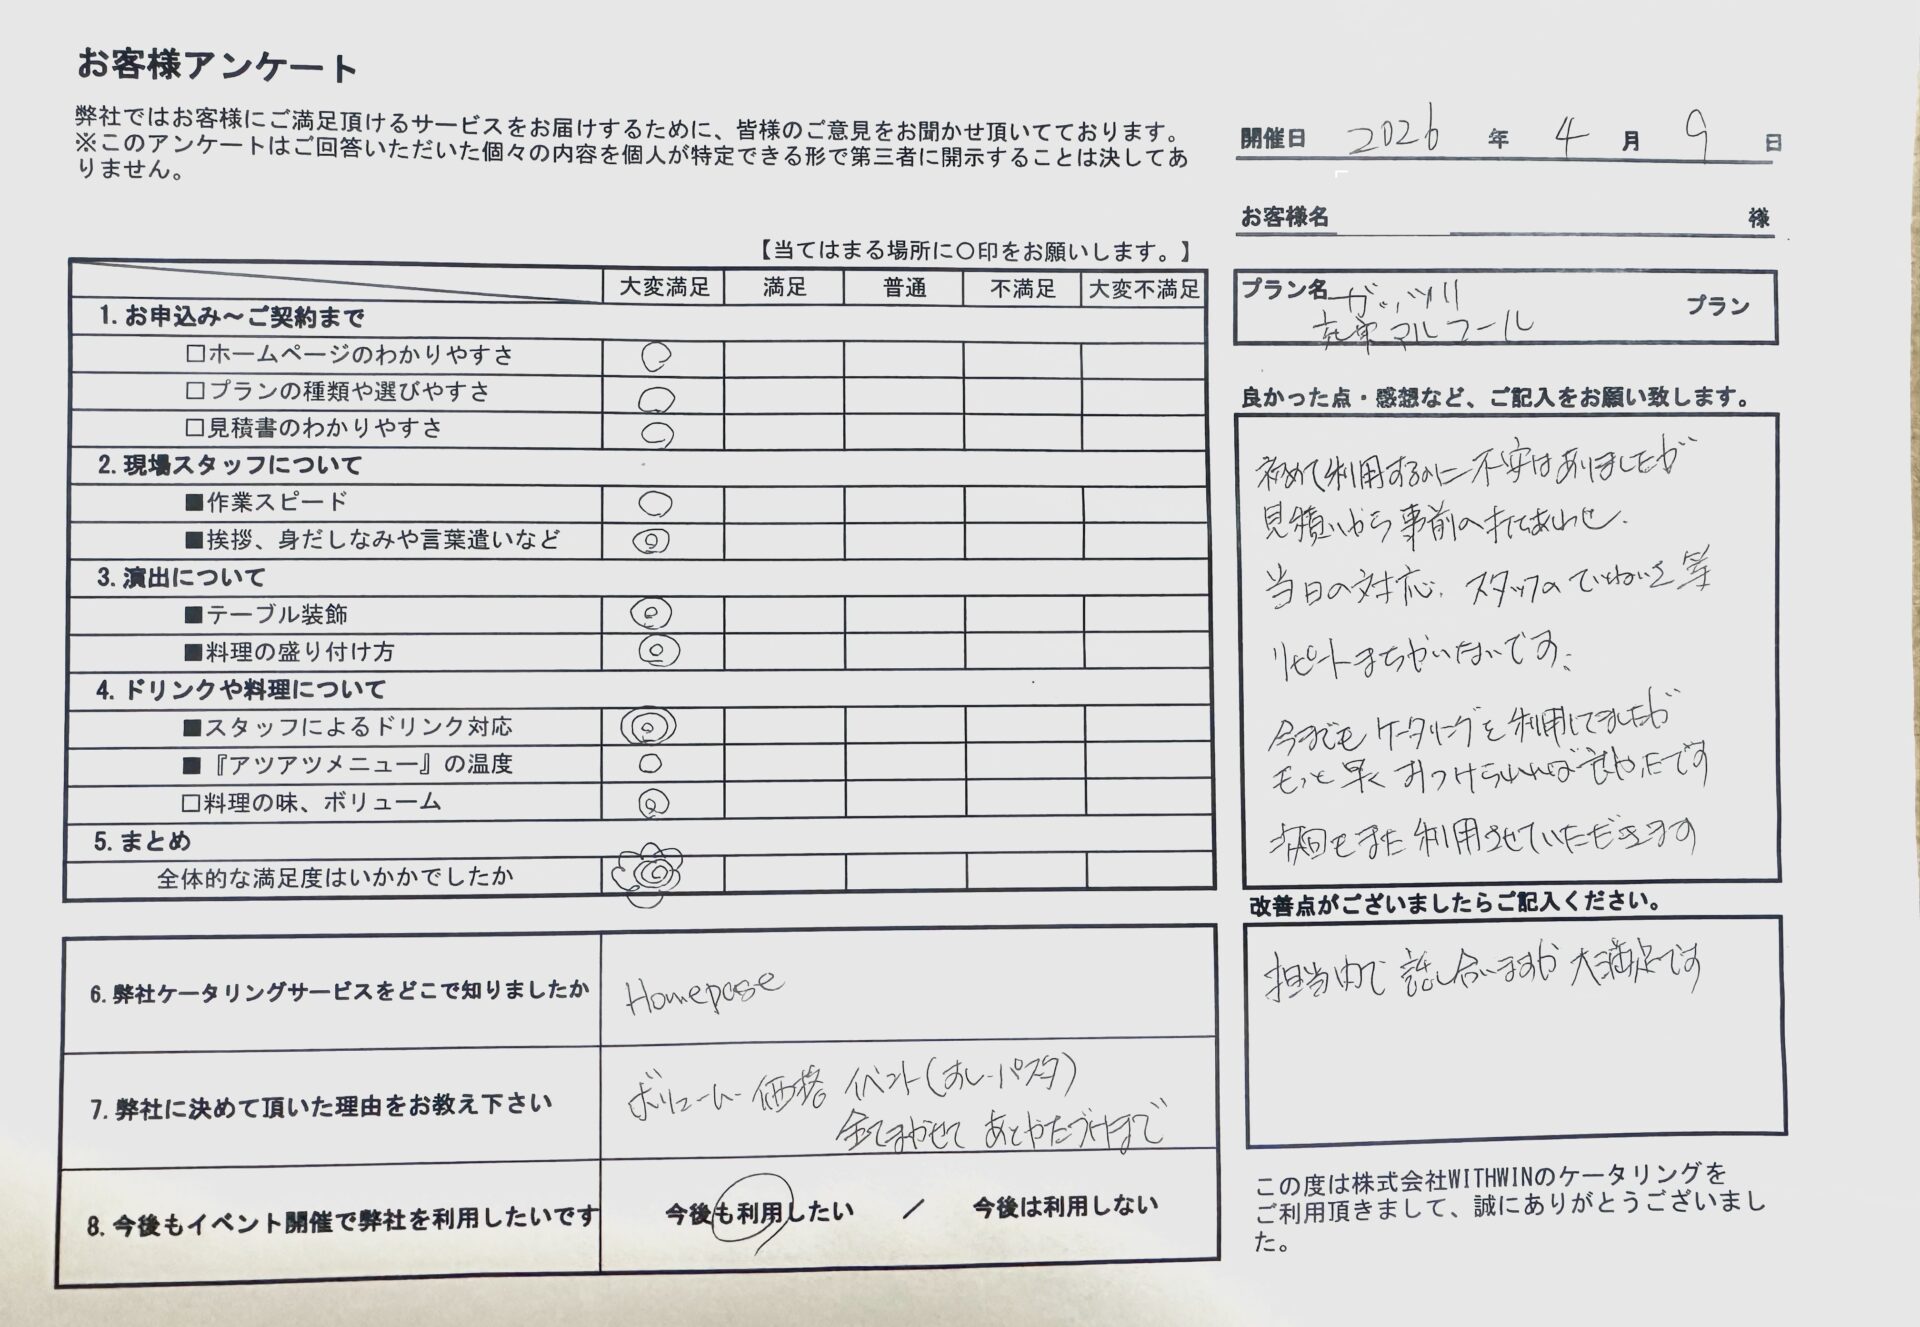 お客様アンケート
弊社ではお客様にご満足頂けるサービスをお届けするために、皆様のご意見をお聞かせ頂いてております。
※このアンケートはご回答いただいた個々の内容を個人が特定できる形で第三者に開示することは決してあ
りません。
開催日 2026 年 4 月 9 日
お客様名 様
【当てはまる場所に〇印をお願いします。】
大変満足 満足 普通 不満足 大変不満足
1. お申込み～ご契約まで
□ホームページのわかりやすさ ○
□プランの種類や選びやすさ ○
□見積書のわかりやすさ ○
2. 現場スタッフについて
■作業スピード ○
■挨拶、身だしなみや言葉遣いなど ◎
3. 演出について
■テーブル装飾 ◎
■料理の盛り付け方 ◎
4. ドリンクや料理について
■スタッフによるドリンク対応 ◎
■『アツアツメニュー』の温度 ○
□料理の味、ボリューム ◎
5. まとめ
全体的な満足度はいかかでしたか
プラン名 ガッツリ プラン
充実アルコール
良かった点・感想など、ご記入をお願い致します。
初めて利用するのに不安はありましたが
見積いから事前の打てあわせ、
当日の対応、スタッフのていねいさ等
リピートまちがいないです。
今までもケータリングを利用してましたが
もっと早く見つけられれば良かったです
次回もまた利用させていただきます
改善点がございましたらご記入ください。
担当内で話し合いますが大満足です
6. 弊社ケータリングサービスをどこで知りましたか Homepage
7. 弊社に決めて頂いた理由をお教え下さい ボリューム 価格 イベント( パスタ)
全てまかせて あとかたづけまで
8. 今後もイベント開催で弊社を利用したいです 今後も利用したい ／ 今後は利用しない
この度は株式会社WITHWINのケータリングを
ご利用頂きまして、誠にありがとうございまし
た。